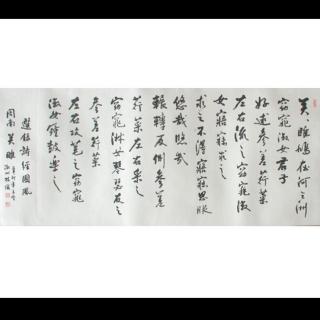 关々雎鸠在河之洲
窈窕淑女君子
好逑参差荇菜
左右流之窈窕淑
女寤寐求之
求之不得寤寐思服
悠哉悠哉
辗转反侧参差
荇菜左右采之
窈窕淑女琴瑟友之
参差荇菜
左右芼之窈窕
淑女钟鼓乐之
选録诗经国风
周南关雎